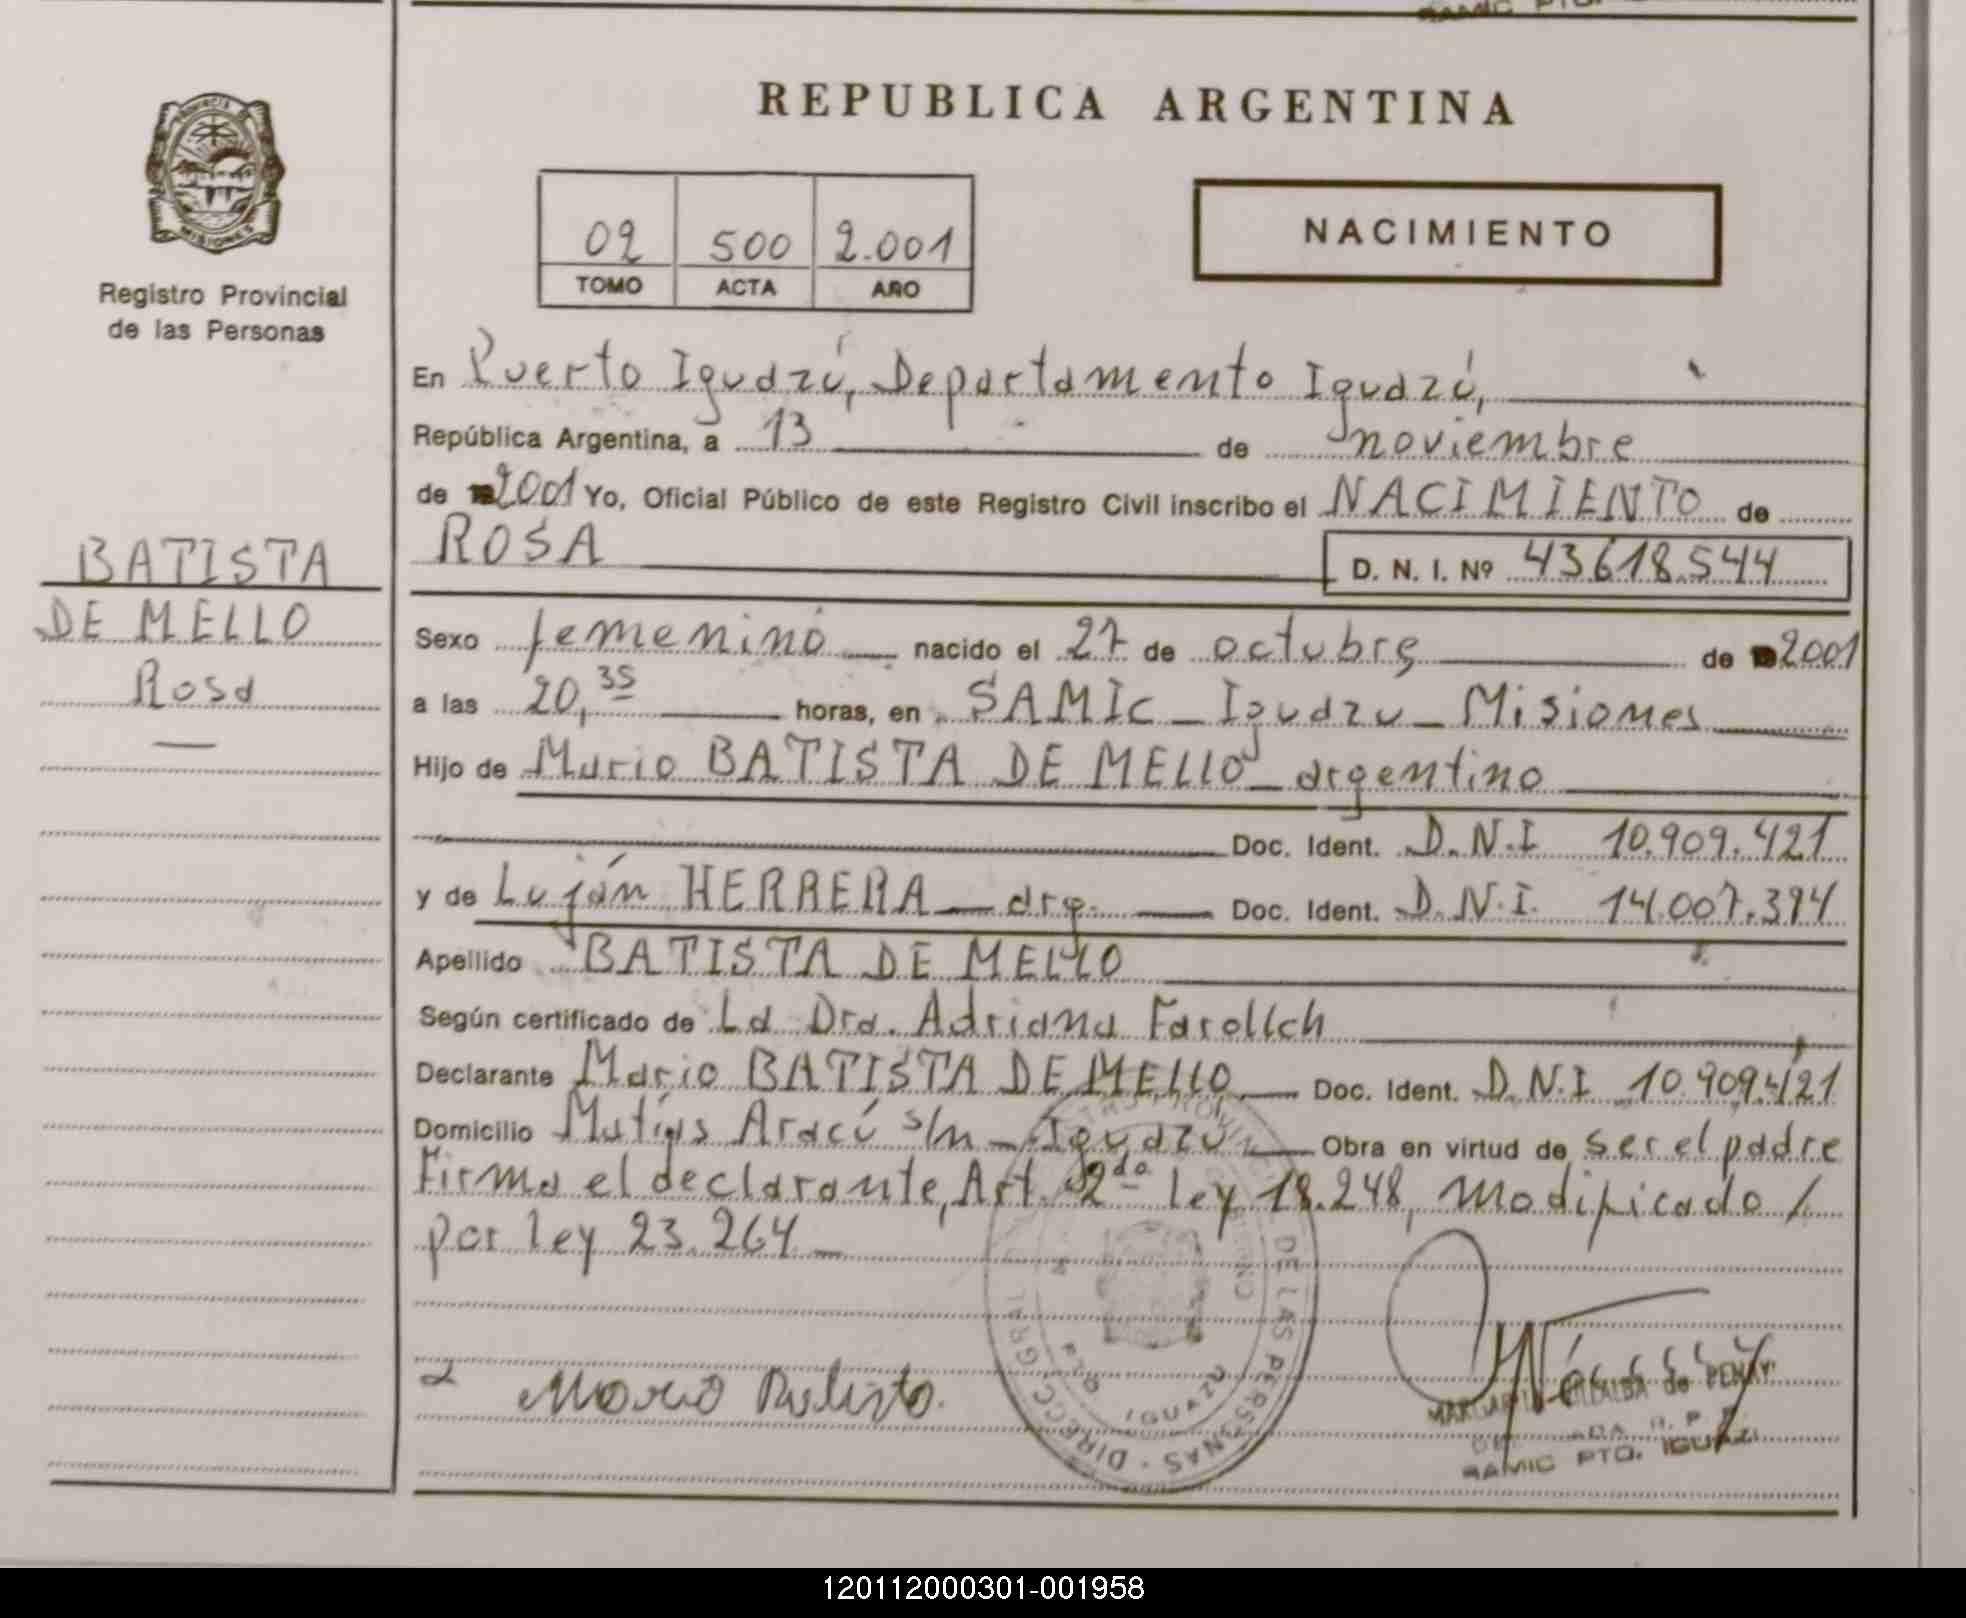 SAMIC PTO.
PROVINCIA DE
MISIONES
Registro Provincial
de las Personas
BATISTA
DE MELLO
Rosa
REPUBLICA ARGENTINA
02 500 2.001
TOMO ACTA AÑO
NACIMIENTO
En Puerto Iguazú, Departamento Iguazú,
República Argentina, a 13 de noviembre
de 2001 Yo, Oficial Público de este Registro Civil inscribo el NACIMIENTO de
ROSA D. N. I. Nº 43618.544
Sexo femenino nacido el 27 de octubre de 2001
a las 20,35 horas, en SAMIC - Iguazu - Misiones
Hijo de Mario BATISTA DE MELLO - argentino
Doc. Ident. D.N.I 10.909.421
y de Luján HERRERA - arg. Doc. Ident. D.N.I. 14.007.394
Apellido BATISTA DE MELLO
Según certificado de La Dra. Adriana
Declarante Mario BATISTA DE MELLO Doc. Ident. D.N.I 10.909.421
Domicilio Matías Aracú s/n - Iguazu Obra en virtud de ser el padre
Firma el declarante, Art. 2do Ley 18.248, modificado /
por ley 23.264 -
DE LAS PERSONAS · DIRECC. GRAL
IGUAZU
Mario Batista.
MARGARITA VILLALBA de
SAMIC PTO. IGUAZU
120112000301-001958